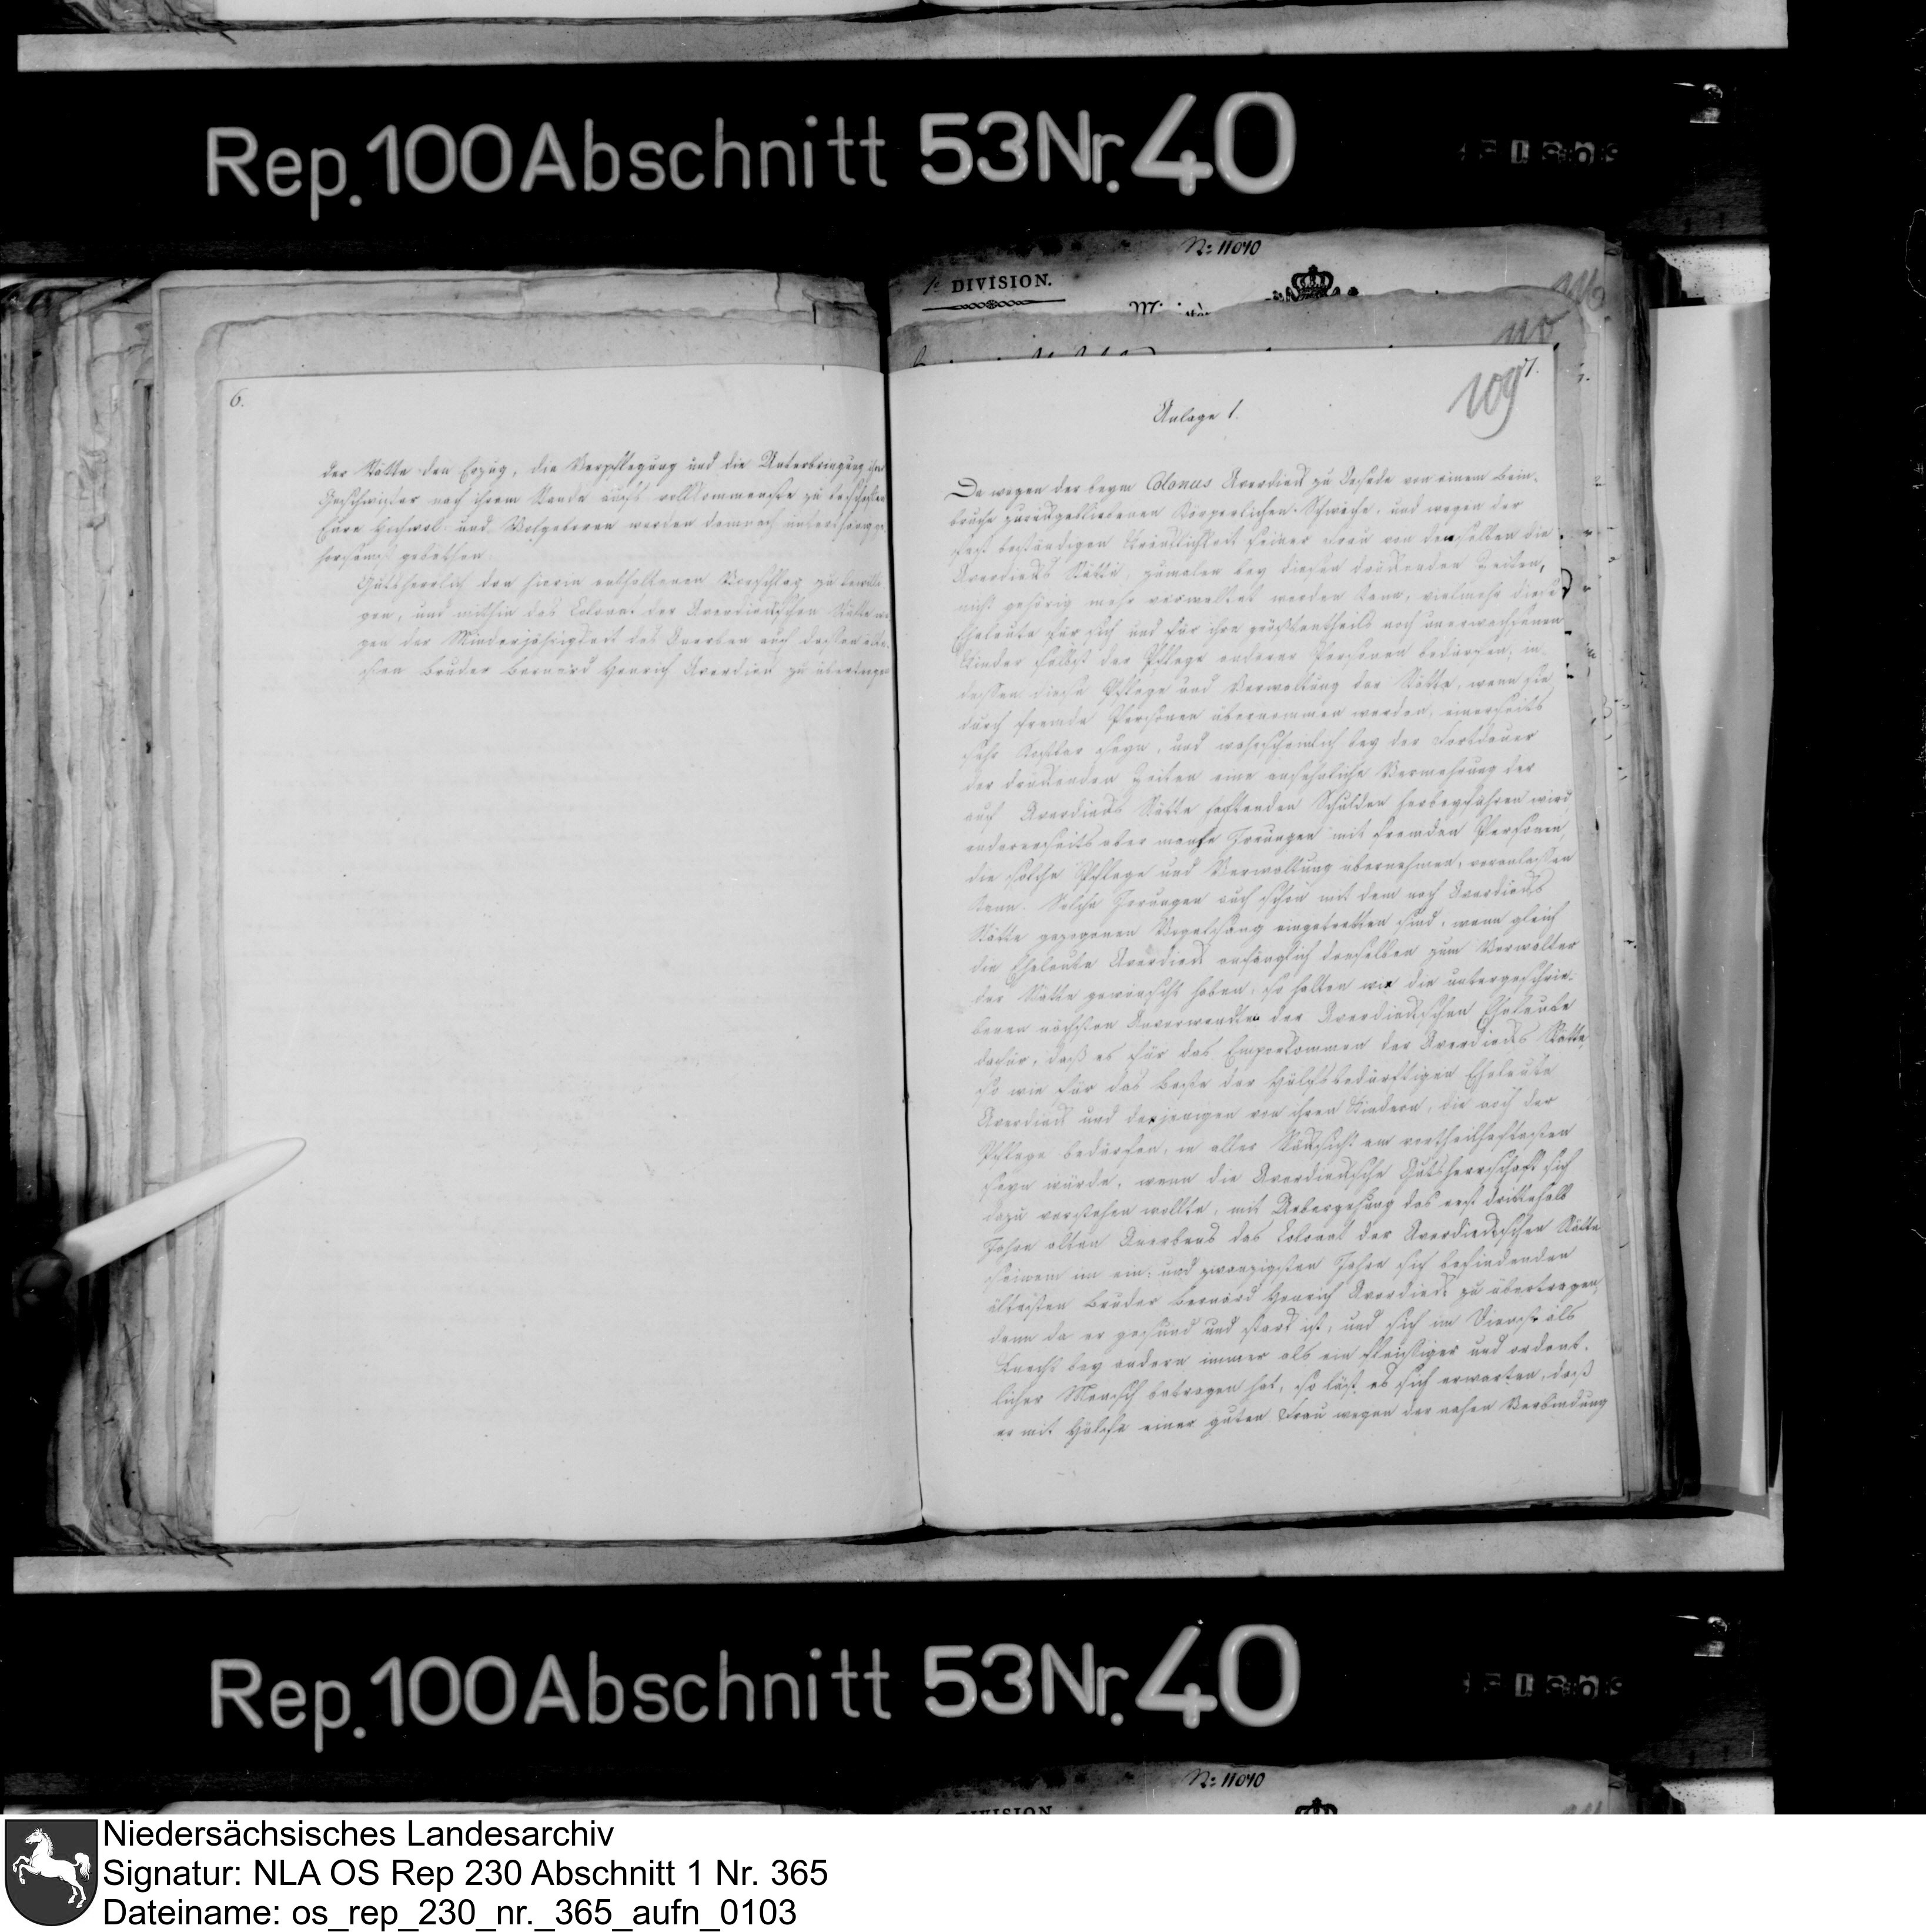 Rep. 100 Abschnitt 53 Nr. 40
No 11040
1e DIVISION.
6.
der Stätte den Erzug, die Verpflegung und die Unterbringung ihrer
Geschwister nach ihrem Stande aufs vollkommenste zu beschaffen
Eure Hochwol- und Wolgeboren werden demnach unterthänig
gehorsamst gebethen
Gutsherrlich den hierin enthaltenen Vorschlag zu bewilli-
gen, und mithin das Colonat der Averdiekschen Stätte we-
gen der Minderjährigkeit des Anerben auf dessen älte-
sten Bruder Bernard Henrich Averdiek zu übertragen
109
7.
Anlage 1.
Da wegen der beym Colonus Averdieck zu Oesede von einem Bein-
bruche zurückgebliebenen körperlichen Schwäche, und wegen der
fast beständigen Kränklichkeit seiner Frau von denselben die
Averdiecks Stätte, zumalen bey diesen drückenden Zeiten,
nicht gehörig mehr verwaltet werden kann, vielmehr diese
Eheleute für sich und für ihre größtentheils noch unerwachsenen
Kinder selbst der Pflege anderer Personen bedürfen, in-
dessen diese Pflege und Verwaltung der Stätte, wenn sie
durch fremde Personen übernommen werden, einerseits
sehr kostbar seyn, und wahrscheinlich bey der Fortdauer
der drückenden Zeiten eine ansehnliche Vermehrung der
auf Averdiecks Stätte haftenden Schulden herbeyführen wird
andererseits aber manche Irrungen mit fremden Personen
die solche Pflege und Verwaltung übernehmen, veranlassen
kann. Solche Irrungen auch schon mit dem nach Averdiecks
Stätte gezogenen Vogelsang eingetretten sind, wenn gleich
die Eheleute Averdieck anfänglich denselben zum Verwalter
der Stätte gewünscht haben; so halten wir die untergeschrie-
benen nächsten Anverwandten der Averdieckschen Eheleute
dafür, daß es für das Emporkommen der Averdiecks Stätte,
so wie für das Beste der hülfsbedürftigen Eheleute
Averdieck und derjenigen von ihren Kindern, die noch der
Pflege bedürfen, in aller Rücksicht am vortheilhaftesten
seyn würde, wenn die Averdiecksche Gutsherrschaft sich
dazu verstehen wollte, mit Uebergehung des erst drittehalb
Jahre alten Anerbens das Colonat der Averdieckschen Stätte
seinem im ein- und zwanzigsten Jahre sich befindenden
ältesten Bruder Bernard Henrich Averdieck zu übertragen,
denn da er gesund und stark ist, und sich im Dienste als
Knecht bey andern immer als ein fleissiger und ordent-
licher Mensch betragen hat, so läst es sich erwarten, daß
er mit Hülfe einer guten Frau wegen der nahen Verbindung
Rep. 100 Abschnitt 53 Nr. 40
No 11040
DIVISION
Niedersächsisches Landesarchiv
Signatur: NLA OS Rep 230 Abschnitt 1 Nr. 365
Dateiname: os_rep_230_nr._365_aufn_0103